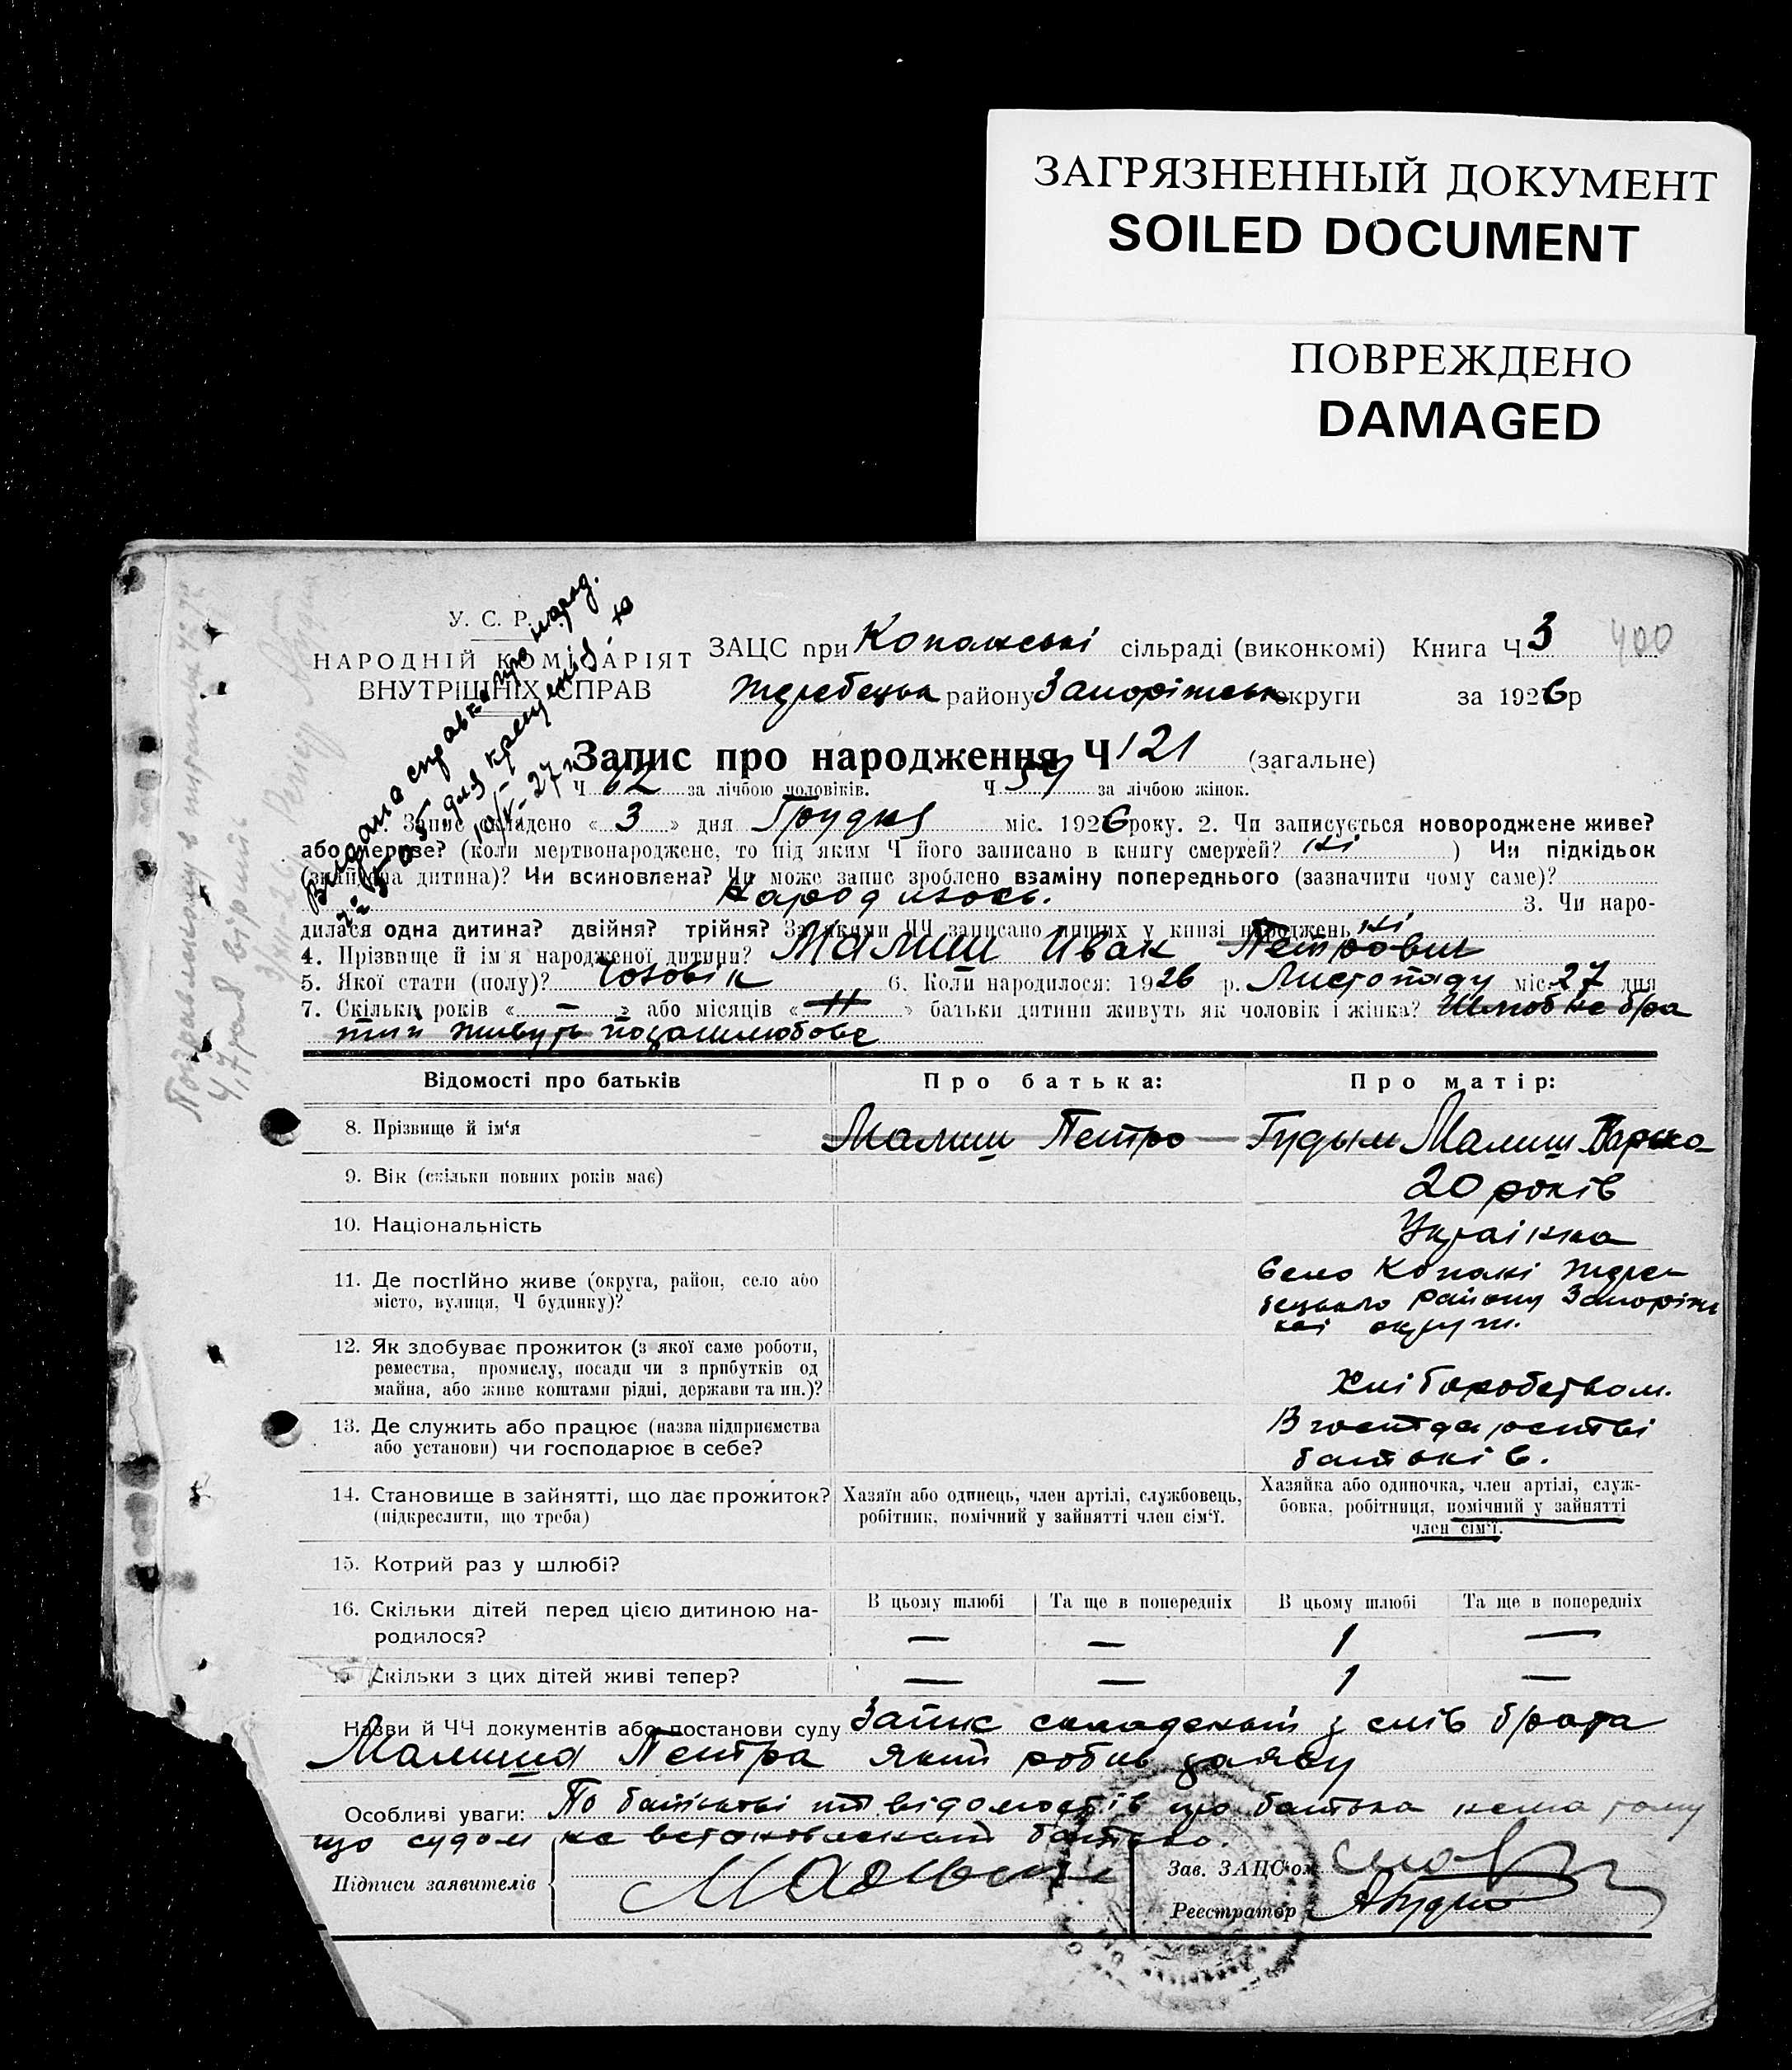 ЗАГРЯЗНЕННЫЙ ДОКУМЕНТ
SOILED DOCUMENT
ПОВРЕЖДЕНО
DAMAGED
У. С. Р.
НАРОДНІЙ КОМІСАРІЯТ
ВНУТРІШНІХ СПРАВ
Видана справка про народ.
для крещения
ЗАЦС при Копанські сільраді (виконкомі) Книга Ч 3 400
Жеребецька району Запоріжськ округи за 1926 р
Запис про народження Ч 121 (загальне)
Ч 62 за лічбою чоловіків. Ч 59 за лічбою жінок.
1. Запис складено « 3 » дня Грудня міс. 1926 року. 2. Чи записується новороджене живе?
або мертве? (коли мертвонароджене, то під яким Ч його записано в книгу смертей? ні ) Чи підкідьок
(знайдена дитина)? Чи всиновлена? Чи може запис зроблено взаміну попереднього (зазначити чому саме)?
Народилось. 3. Чи наро-
дилася одна дитина? двійня? трійня? За якими ЧЧ записано инших у книзі народжень ні
4. Прізвище й ім'я народженої дитини? Малиш Иван Петрович
5. Якої стати (полу)? Чоловік 6. Коли народилося: 1926 р. Листопаду міс. 27 дня
7. Скільки років « — » або місяців « 11 » батьки дитини живуть як чоловік і жінка? Шлюб не бра
тий живуть позашлюбове
Відомості про батьків Про батька: Про матір:
8. Прізвище й ім'я Малиш Петро Гудым Малиш Варка
9. Вік (скільки повних років має) 20 років
10. Національність Українка
11. Де постійно живе (округа, район, село або
місто, вулиця, Ч будинку)?
Село Копані Жере-
бецького Району Запоріж
кої округи.
12. Як здобуває прожиток (з якої саме роботи,
ремества, промислу, посади чи з прибутків од
майна, або живе коштами рідні, держави та ин.)?
Хліборобством.
13. Де служить або працює (назва підприємства
або установи) чи господарює в себе?
В господарстві
батьків.
14. Становище в зайнятті, що дає прожиток?
(підкреслити, що треба)
Хазяїн або одинець, член артілі, службовець,
робітник, помічний у зайнятті член сім'ї.
Хазяйка або одиночка, член артілі, служ-
бовка, робітниця, помічний у зайнятті
член сім'ї.
15. Котрий раз у шлюбі?
16. Скільки дітей перед цією дитиною на-
родилося?
В цьому шлюбі Та ще в попередніх В цьому шлюбі Та ще в попередніх
— — 1 —
Скільки з цих дітей живі тепер? — — 1 —
Назви й ЧЧ документів або постанови суду Запис складений з слів брата
Малиша Петра який робив заяву
Особливі уваги: По батькові та відомостів про батька нема тому
що судом не встановлений батько.
Підписи заявителів Зав. ЗАЦС'ом
Реєстратор